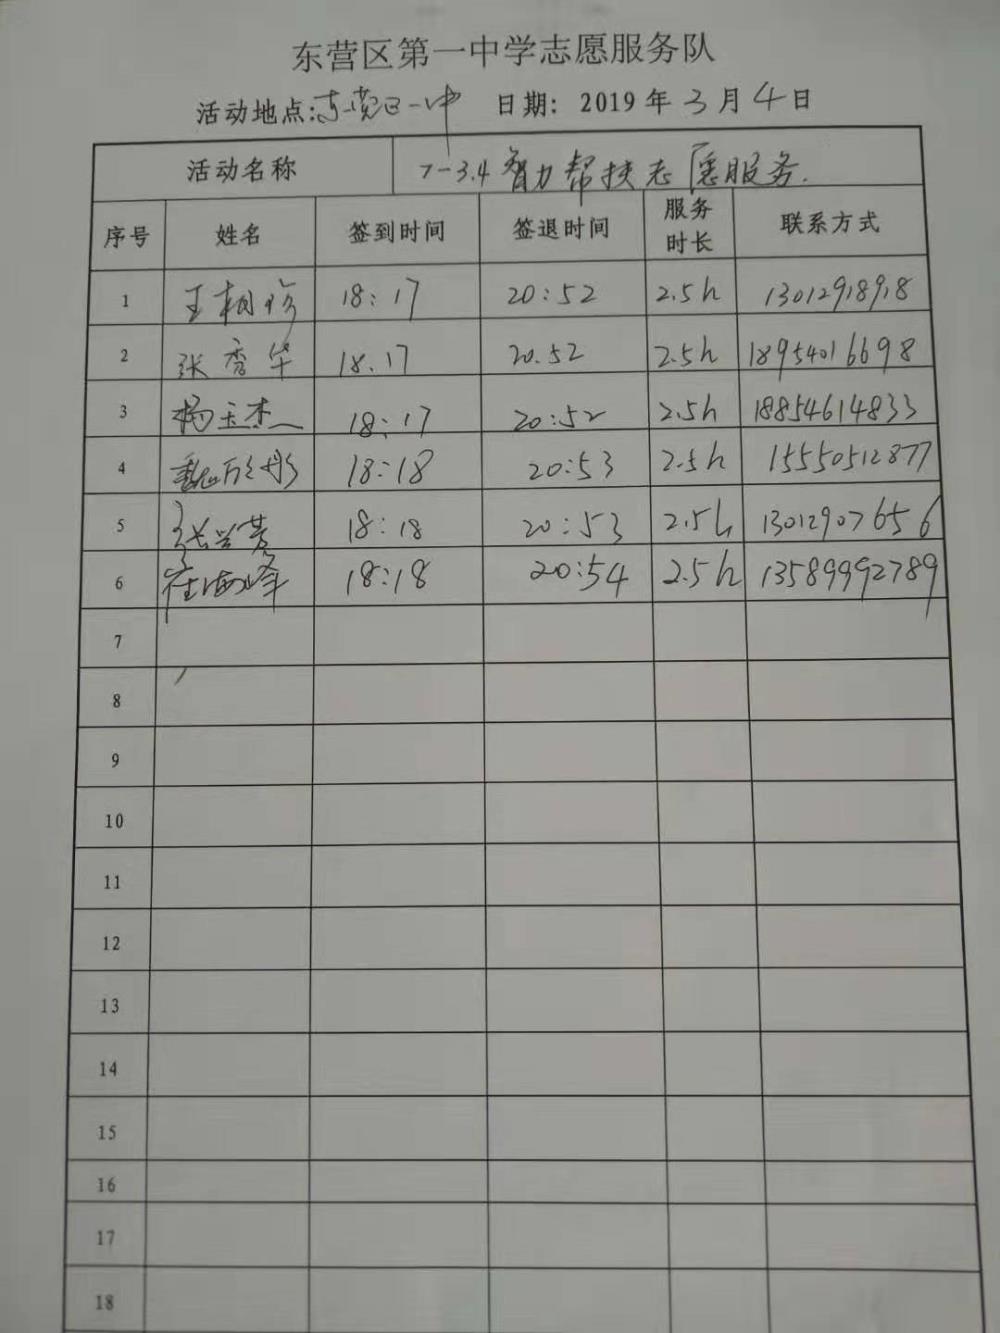 东营区第一中学志愿服务队
活动地点:东营区一中 日期: 2019年3月4日
活动名称 7-3.4 智力帮扶志愿服务.
序号 姓名 签到时间 签退时间 服务时长 联系方式
1 王相珍 18:17 20:52 2.5h 13012918918
2 张秀华 18.17 20.52 2.5h 18954016698
3 杨玉杰 18:17 20:52 2.5h 18854614833
4 18:18 20:53 2.5h 15550512877
5 18:18 20:53 2.5h 13012907656
6 崔海峰 18:18 20:54 2.5h 13589992789
7
8
9
10
11
12
13
14
15
16
17
18